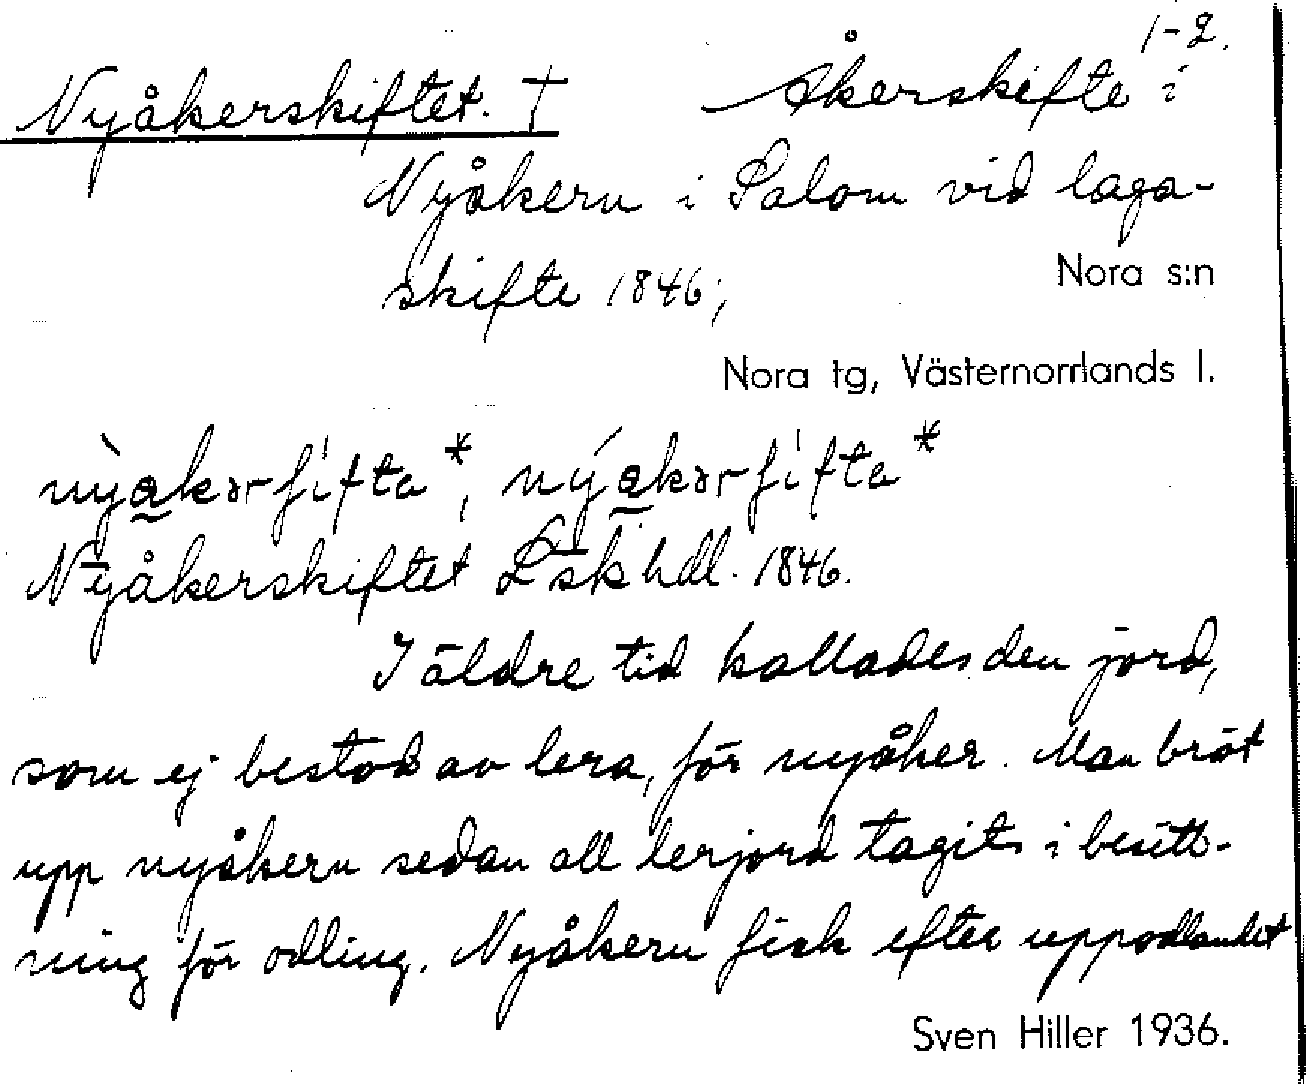 1-2.
Nyåkerskiftet. † Åkerskifte i
Nyåkern i Salom vid laga-
skifte 1846;
Nora s:n
Nora tg, Västernorrlands l.
Nyåkerskiftet L sk hdl. 1846.
I äldre tid kallades den jord,
som ej bestod av lera, för nyåker. Man bröt
upp nyåkern sedan all lerjord tagits i besitt-
ning för odling. Nyåkern fick efter uppodlandet
Sven Hiller 1936.